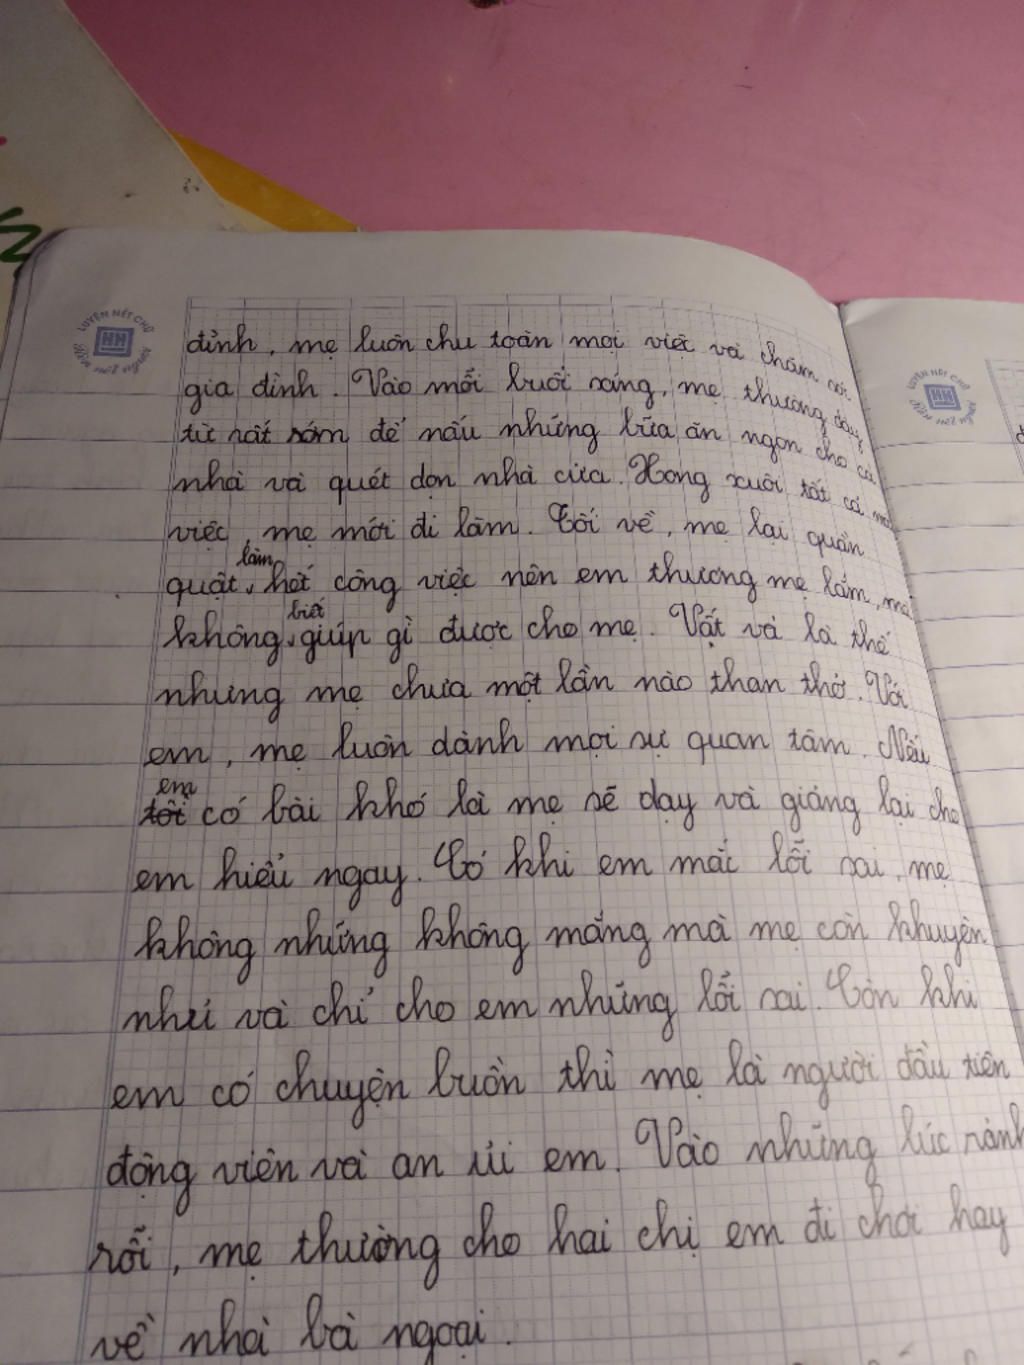 LUYỆN NÉT CHỮ
HH
LUYỆN NÉT CHỮ
HH
đình, mẹ luôn chu toàn mọi việc và chăm sóc
gia đình. Vào mỗi buổi sáng, mẹ thường dậy
từ rất sớm để nấu những bữa ăn ngon cho cả
nhà và quét dọn nhà cửa. Xong xuôi tất cả mọi
việc, mẹ mới đi làm. Tối về, mẹ lại quần
quật làm hết công việc nên em thương mẹ lắm, mà
không biết giúp gì được cho mẹ. Vất vả là thế
nhưng mẹ chưa một lần nào than thở. Với
em, mẹ luôn dành mọi sự quan tâm. Nếu
em có bài khó là mẹ sẽ dạy và giảng lại cho
em hiểu ngay. Có khi em mắc lỗi sai, mẹ
không những không mắng mà mẹ còn khuyên
nhủ và chỉ cho em những lỗi sai. Còn khi
em có chuyện buồn thì mẹ là người đầu tiên
động viên và an ủi em. Vào những lúc rảnh
rỗi, mẹ thường cho hai chị em đi chơi hay
về nhà bà ngoại.